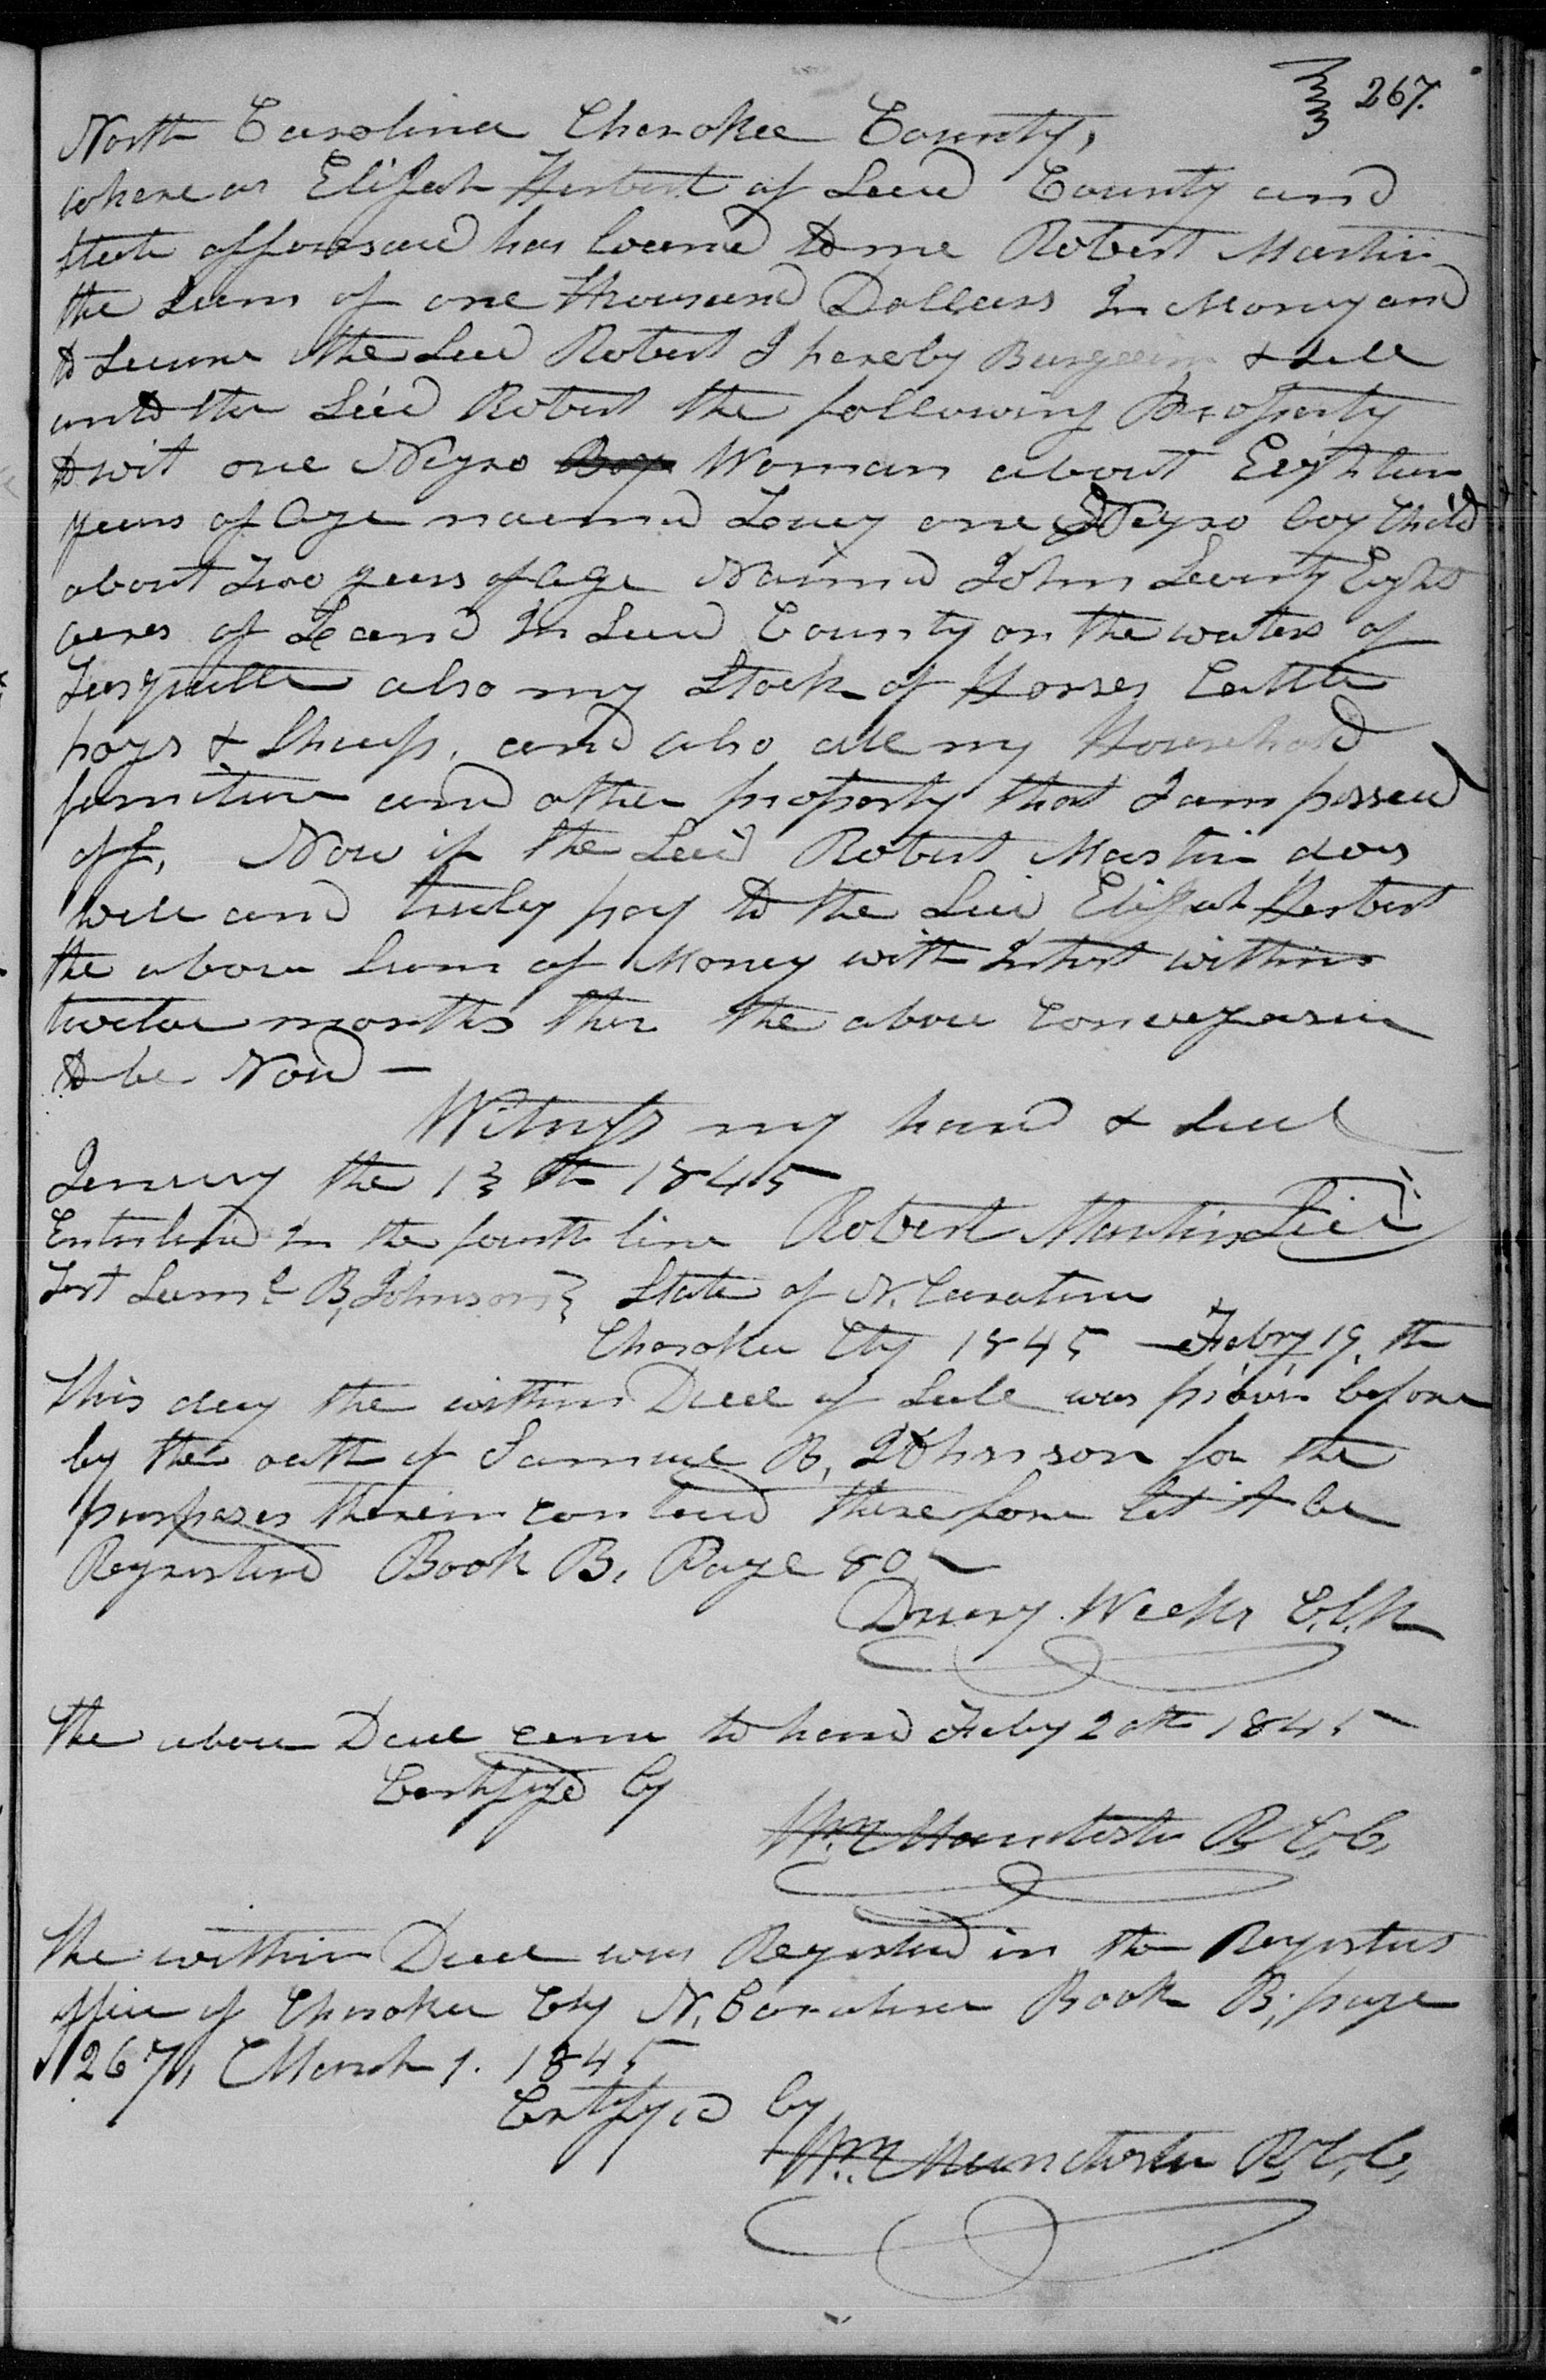 267.
North Carolina Cherokee County,
where as Elijah Herbert of Said County and
State afforesaid has loaned to me Robert Martin
the Sum of one thousand Dollars In Money and
to Secure the Said Robert I hereby Bargain & Sell
unto the Said Robert the following Property
to wit one Negro Boy Woman about Eighteen
years of Age named Loucy one Negro boy Child
about Two years of Age Named John Seventy Eight
acres of Land In Said County on the waters of
Tusquittee also my Stock of Horses Cattle
hogs & Sheep, and also all my Household
furniture and other property that I am possesed
off, Now if the Said Robert Martin does
well and truly pay to the Said Elijah Herbert
the above Sum of Money with Intrst within
twelve months then the above Conveyance
to be Void —
Witness my hand & Seal
January the 13th 1845
Enterlined In the fourth line Robert Martin Seal
Test Saml B, Johnson } State of N. Carolina
Cherokee Cty 1845 – Febry 19th
This day the within Deed of Sale was proven before
by the oath of Samuel B, Johnson for the
purposes therein contained therefore let it be
Registered Book B, Page 80
Drury Weeks C.C.K
The above Deed came to hand Feby 20th 1845
Certifyed by
Wm Manchester R C, C,
The within Deed was Registered in the Registers
office of Cherokee Cty N, Carolina Book B; page
267, March 1. 1845
Certifyed by
Wm Manchester R, C, C,